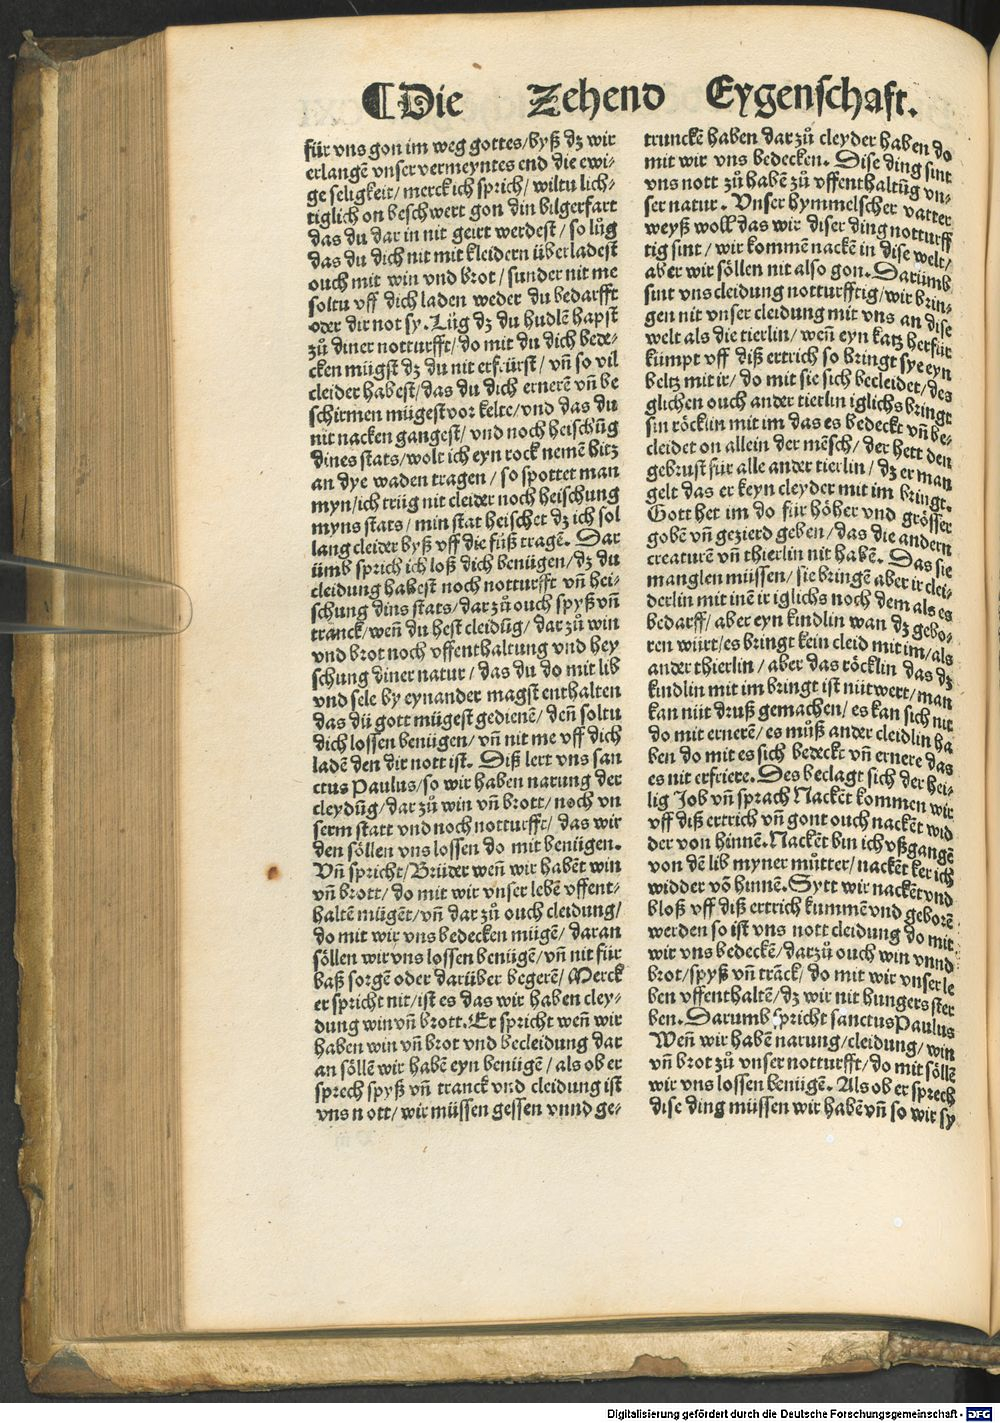 ¶Die Zehend Eygenschaft.
für vns gon im weg gottes/byß dz wir
erlangẽ vnser vermeyntes end die ewi-
ge seligkeit/ merck ich sprich/ wiltu lich-
tiglich on beschwert gon din bilgerfart
das du dar in nit geirt werdest/ so lůg
das du dich nit mit kleidern überladest
ouch mit win vnd brot/ sunder nit me
soltu vff dich laden weder du bedarfft
oder dir not sy. Lůg dz du hudlẽ hapst
zů diner notturfft/ do mit du dich bede-
cken mügst dz du nit erfrürst/ vñ so vil
cleider habest/das du dich ernerẽ vñ be
schirmen mügest vor kelte/vnd das du
nit nacken gangest/ vnd noch heischũg
dines stats/wolt ich eyn rock nemẽ bitz
an dye waden tragen / so spottet man
myn/ich trüg nit cleider noch heischung
myns stats/ min stat heischet dz ich sol
lang cleider byß vff die füß tragẽ. Dar
ümb sprich ich loß dich benügen/dz du
cleidung habest noch notturfft vñ hei-
schung dins stats/dar zů ouch spyß vñ
tranck/weñ du hest cleidũg/ dar zů win
vnd brot noch vffenthaltung vnd hey
schung diner natur/ das du do mit lib
vnd sele by eynander magst enthalten
das dü gott mügest gedienẽ/ deñ soltu
dich lossen benügen/ vñ nit me vff dich
ladẽ den dir nott ist. Diß lert vns san
ctus Paulus/so wir haben narung der
cleydũg/ dar zů win vñ brott/ noch vn
serm statt vnd noch notturfft/ das wir
den söllen vns lossen do mit benügen.
Vñ spricht/Brüder weñ wir habẽt win
vñ brott/ do mit wir vnser lebẽ vffent-
haltẽ mügẽt/vñ dar zů ouch cleidung/
do mit wir vns bedecken mügẽ/ daran
söllen wir vns lossen benügẽ/vñ nit für
baß sorgẽ oder darüber begerẽ/ Merck
er spricht nit/ist es das wir haben cley-
dung win vñ brott. Er spricht weñ wir
haben win vñ brot vnd becleidung dar
an söllẽ wir habẽ eyn benügẽ/ als ob er
sprech spyß vñ tranck vnd cleidung ist
vns n ott/ wir müssen gessen vnnd ge-
trunckẽ haben dar zů cleyder haben do
mit wir vns bedecken. Dise ding sint
vns nott zů habẽ zů vffenthaltũg vn-
ser natur. Vnser hymmelscher vatter
weyß woll das wir diser ding notturff
tig sint/ wir kommẽ nackẽ in dise welt/
aber wir söllen nit also gon. Darümb
sint vns cleidung notturfftig/wir brin-
gen nit vnser cleidung mit vns an dise
welt als die tierlin/ weñ eyn katz herfür
kümpt vff diß ertrich so bringt sye eyn
beltz mit ir/ do mit sie sich becleidet/des
glichen ouch ander tierlin iglichs bringt
sin röcklin mit im das es bedeckt vñ be-
cleidet on allein der mẽsch/ der hett den
gebrust für alle ander tierlin/ dz er man
gelt das er keyn cleyder mit im bringt.
Gott het im do für höher vnd grösser
gobẽ vñ gezierd geben/das die andern
creaturẽ vñ thierlin nit habẽ. Das sie
manglen müssen/ sie bringẽ aber ir clei-
derlin mit inẽ ir iglichs noch dem als es
bedarff/ aber eyn kindlin wan dz gebo-
ren würt/es bringt kein cleid mit im/als
ander thierlin/ aber das röcklin das dz
kindlin mit im bringt ist nüt wert/man
kan nüt druß gemachen/ es kan sich nit
do mit ernerẽ/es můß ander cleidlin ha
ben do mit es sich bedeckt vñ ernere das
es nit erfriere. Des beclagt sich der hei-
lig Job vñ sprach Nackẽt kommen wir
vff diß ertrich vñ gont ouch nackẽt wid
der von hinnẽ. Nackẽt bin ich vßgangẽ
von dẽ lib myner můtter/ nackẽt ker ich
widder võ hinnẽ. Sytt wir nackẽt vnd
bloß vff diß ertrich kummẽ vnd geborẽ
werden so ist vns nott cleidung do mit
wir vns bedeckẽ/darzů ouch win vnnd
brot/spyß vñ trãck/ do mit wir vnser le
ben vffenthaltẽ/dz wir nit hungers ster
ben. Darumb spricht sanctus Paulus
Weñ wir habẽ narung/cleidung/ win
vñ brot zů vnser notturfft/do mit söllẽ
wir vns lossen benügẽ. Als ob er sprech
dise ding müssen wir habẽ vñ so wir sy
Digitalisierung gefördert durch die Deutsche Forschungsgemeinschaft - DFG